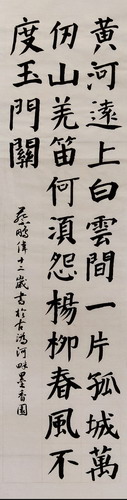 黃河遠上白雲間一片孤城萬
仞山羌笛何須怨楊柳春風不
度玉門關
鵬偉十二歲書於古河畔墨香園